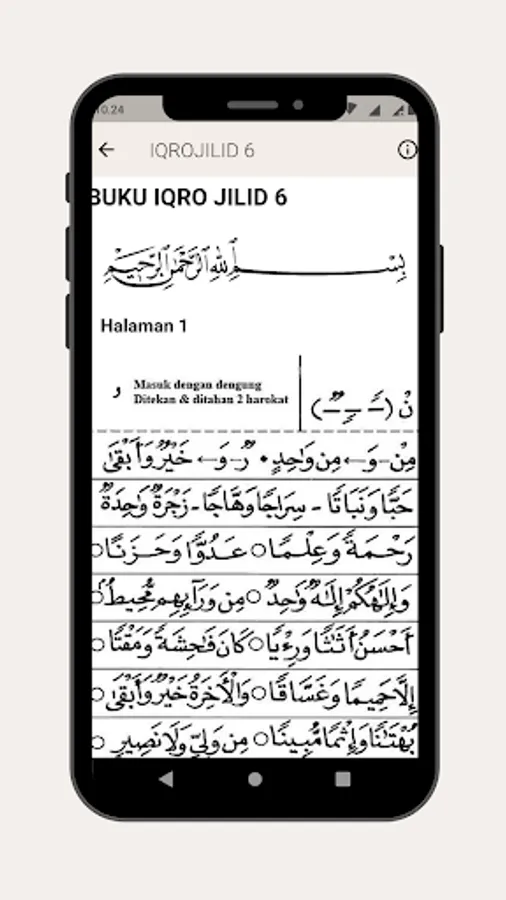 10.24
IQROJILID 6
BUKU IQRO JILID 6
بِسْمِ اللهِ الرَّحْمٰنِ الرَّحِيْمِ
Halaman 1
نْ (ــًـ ــٍـ ــٌـ) و Masuk dengan dengung
Ditekan & ditahan 2 harokat
مِنْ - وَ ← مِن وَاحِدٍ • رٌ - وَ ← خَيْرٌ وَأَبْقَىٰ
حَبًّا وَنَبَاتًا - سِرَاجًا وَهَّاجًا - زَجْرَةٌ وَاحِدَةٌ
رَحْمَةً وَعِلْمًا ○ عَدُوًّا وَحَزَنًا ○
وَإِلَٰهُكُمْ إِلَٰهٌ وَاحِدٌ ○ مِن وَرَآئِهِم مُّحِيطٌ ○
أَحْسَنُ أَثَاثًا وَرِءْيًا ○ كَانَ فَاحِشَةً وَمَقْتًا ○
إِلَّا حَمِيمًا وَغَسَّاقًا ○ وَالْأَخِرَةُ خَيْرٌ وَأَبْقَىٰ ○
بُهْتَانًا وَإِثْمًا مُّبِينًا ○ مِن وَلِيٍّ وَلَا نَصِيرٍ ○